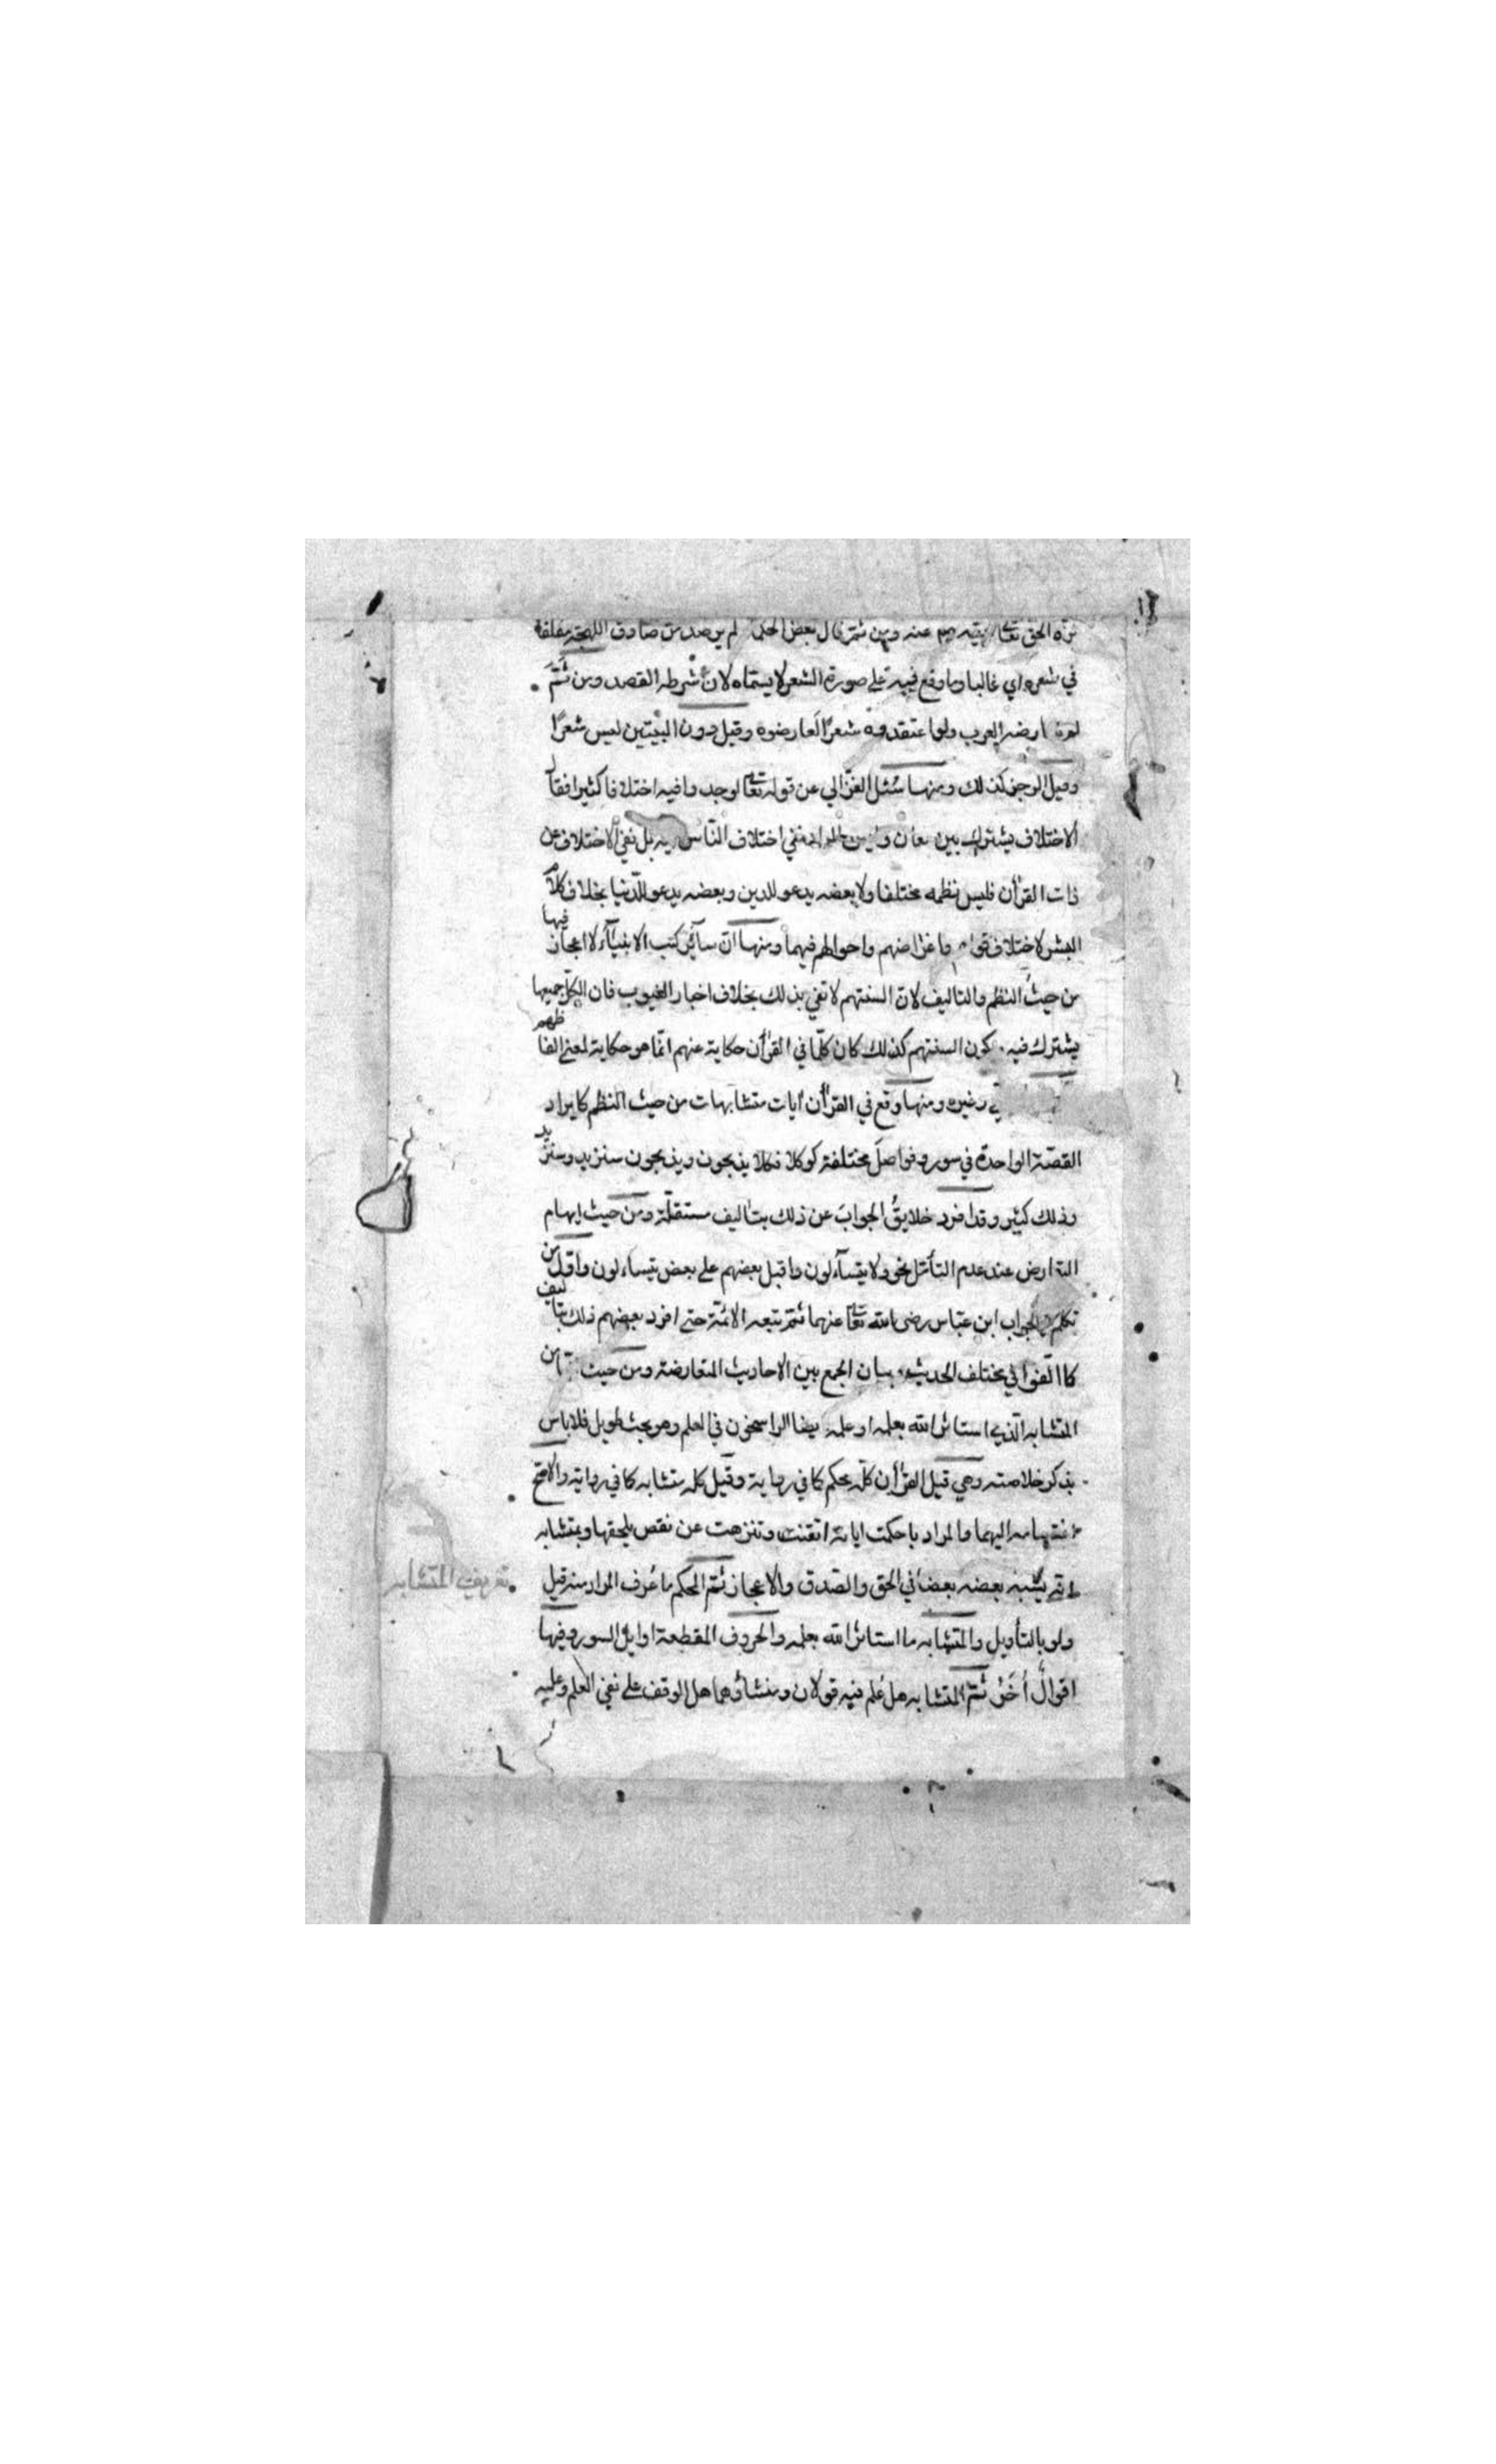 نزه الحق تعالى نبيه صلعم عنه ومن ثم قال بعض الحكماء لم ير متدين صادق اللهجة مفلقا
في شعره اي غالبا وما وقع فيه على صورة الشعر لا يسماه لان شرطه القصد ومن ثم
العرب ولو اعتقدوه شعرا لعارضوه وقيل دون البيتين ليس شعرا
وقيل الرجز كذلك ومنها سئل الغزالي عن قوله تعالى لوجدوا فيه اختلافا كثيرا فقال
الاختلاف يشترك بين معان وليس المراد نفي اختلاف الناس فيه بل نفي الاختلاف عن
ذات القرأن فليس نظمه مختلفا ولا بعضه يدعو للدين وبعضه يدعو للدنيا بخلاف كلام
البشر لاختلاف واغراضهم واحوالهم فيهما ومنها ان سائر كتب الانبياء لا اعجاز فيها
من حيث النظم والتاليف لان السنتهم لا تفي بذلك بخلاف اخبار الغيوب فان الكل جميعها
يشترك فيه كون السنتهم كذلك كان كلما في القرأن حكاية عنهم انما هو حكاية لمعنى الفاظهم
وغيره ومنها وقع في القرأن ايات متشابهات من حيث النظم كايراد
القصة الواحدة في سور وفواصل مختلفة كوكلا فكلا يذبحون ويذبحون سنزيد وسنزيد
وذلك كثير وقد افرد خلايق الجواب عن ذلك بتاليف مستقلة ومن حيث ايهام
التعارض عند عدم التأمل نحو ولا يتساءلون واقبل بعضهم على بعض يتساءلون واول من
تكلم في الجواب ابن عباس رضي الله تعالى عنهما ثم تبعه الائمة حتى افرد بعضهم ذلك بتاليف
كما الفوا في مختلف الحديث بيان الجمع بين الاحاديث المتعارضة ومن حيث
المتشابه الذي استاثر الله بعلمه او علمه ايضا الراسخون في العلم وهو بحث طويل فلا باس
بذكر خلاصته وهي قيل القرأن كله محكم كما في رواية وقيل كله متشابه كما في رواية والاصح
انقسامه اليهما والمراد باحكمت اياته اتقنت وتنزهت عن نقص يلحقها وبمتشابه
انه يشبه بعضه بعضا في الحق والصدق والاعجاز ثم المحكم ما عرف المراد منه قيل
ولو بالتأويل والمتشابه ما استاثر الله بعلمه والحروف المقطعة اوايل السور وفيها
اقوال أخر ثم المتشابه هل علم فيه قولان ومنشاؤهما هل الوقف على نفي العلم وعليه
تعريف المتشابه